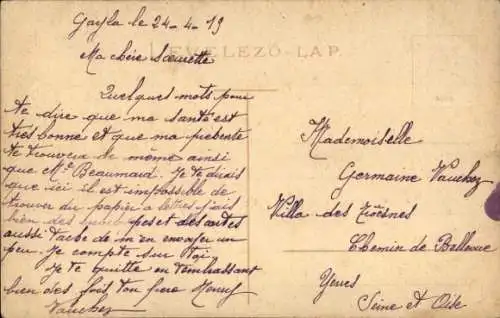 Gayla le 24-4-19
LEVELEZŐ-LAP.
Ma chère Sœurette
Quelques mots pour
te dire que ma santé est
très bonne et que ma présente
te trouvera de même ainsi
que Me Beaumaud. Je te dirais
que ici il est impossible de
trouver du papier a lettres j'ais
bien des et des autes
aussi tache de m'en envoyer un
peu. Je compte sur Toi
Je te quitte en t'embrassant
bien des fois ton frère Henry
Vauchez
Mademoiselle
Germaine Vauchez
Villa des Troësnes
Chemin de Bellevue
Yerres
Seine et Oise